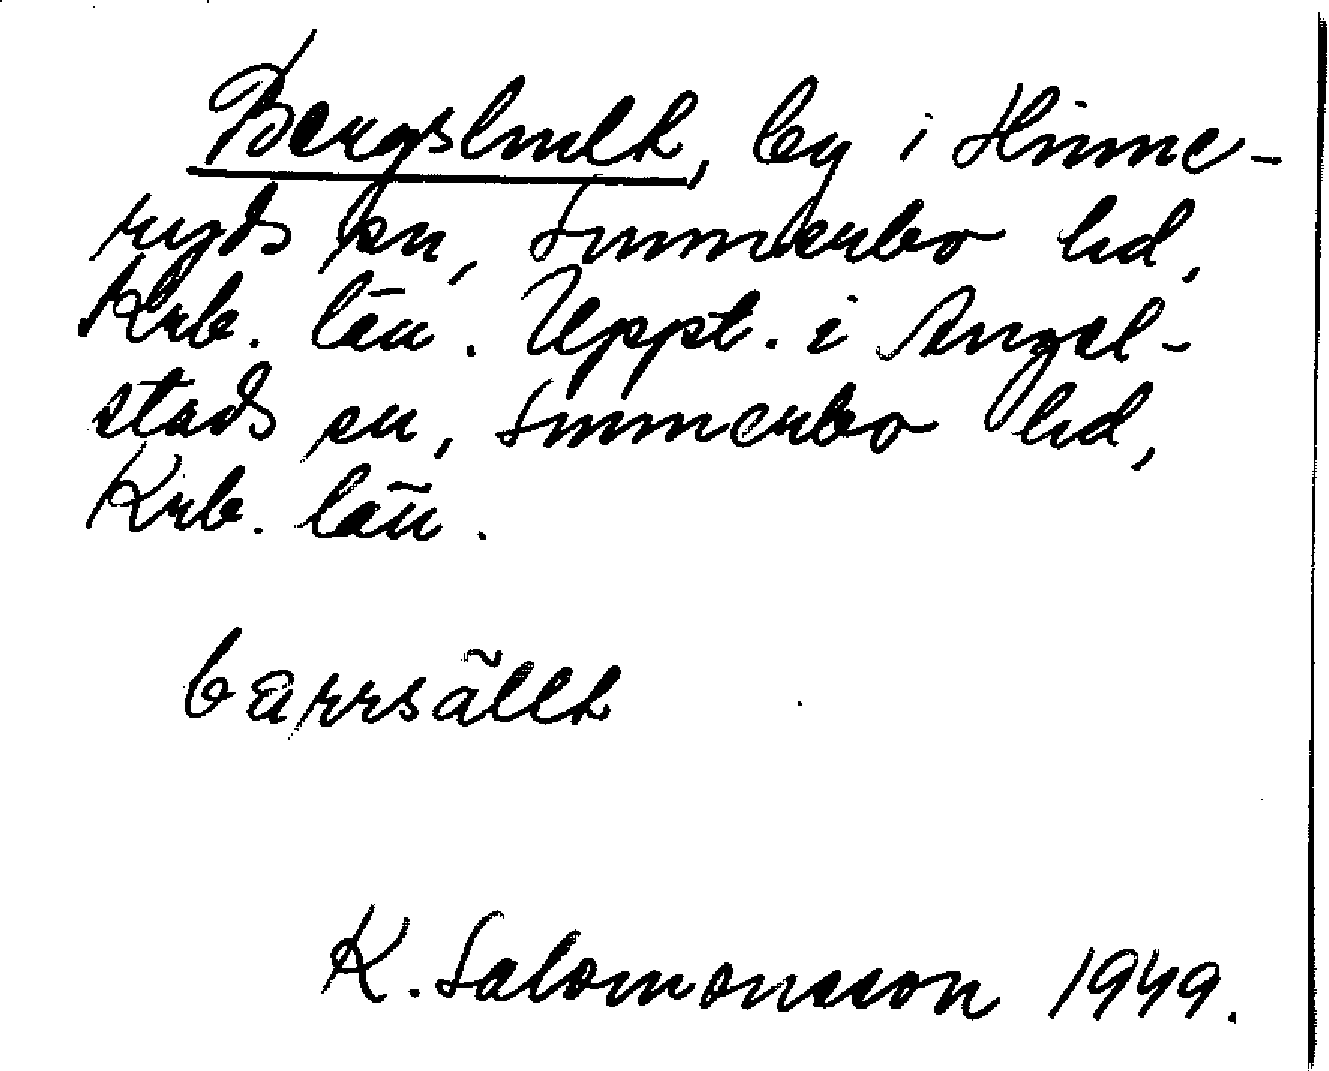 Bergshult, by i Hinne-
ryds sn, Sunnerbo hd,
Krb. län. Uppt. i Angel-
stads sn, Sunnerbo hd,
Krb. län.
barrsällt
K. Salomonsson 1949.